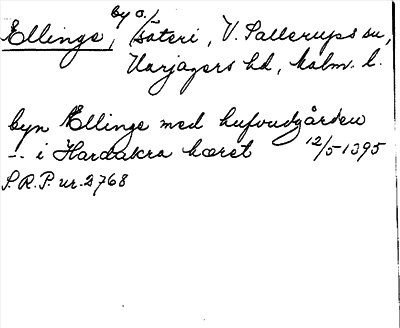 by o./
Ellinge, säteri, V. Sallerups sn,
Harjagers hd, Malm. l.
byn Ellinge med hufvudgården
-"- i Hardakra hæret 12/5 1395
S.R.P. nr. 2768